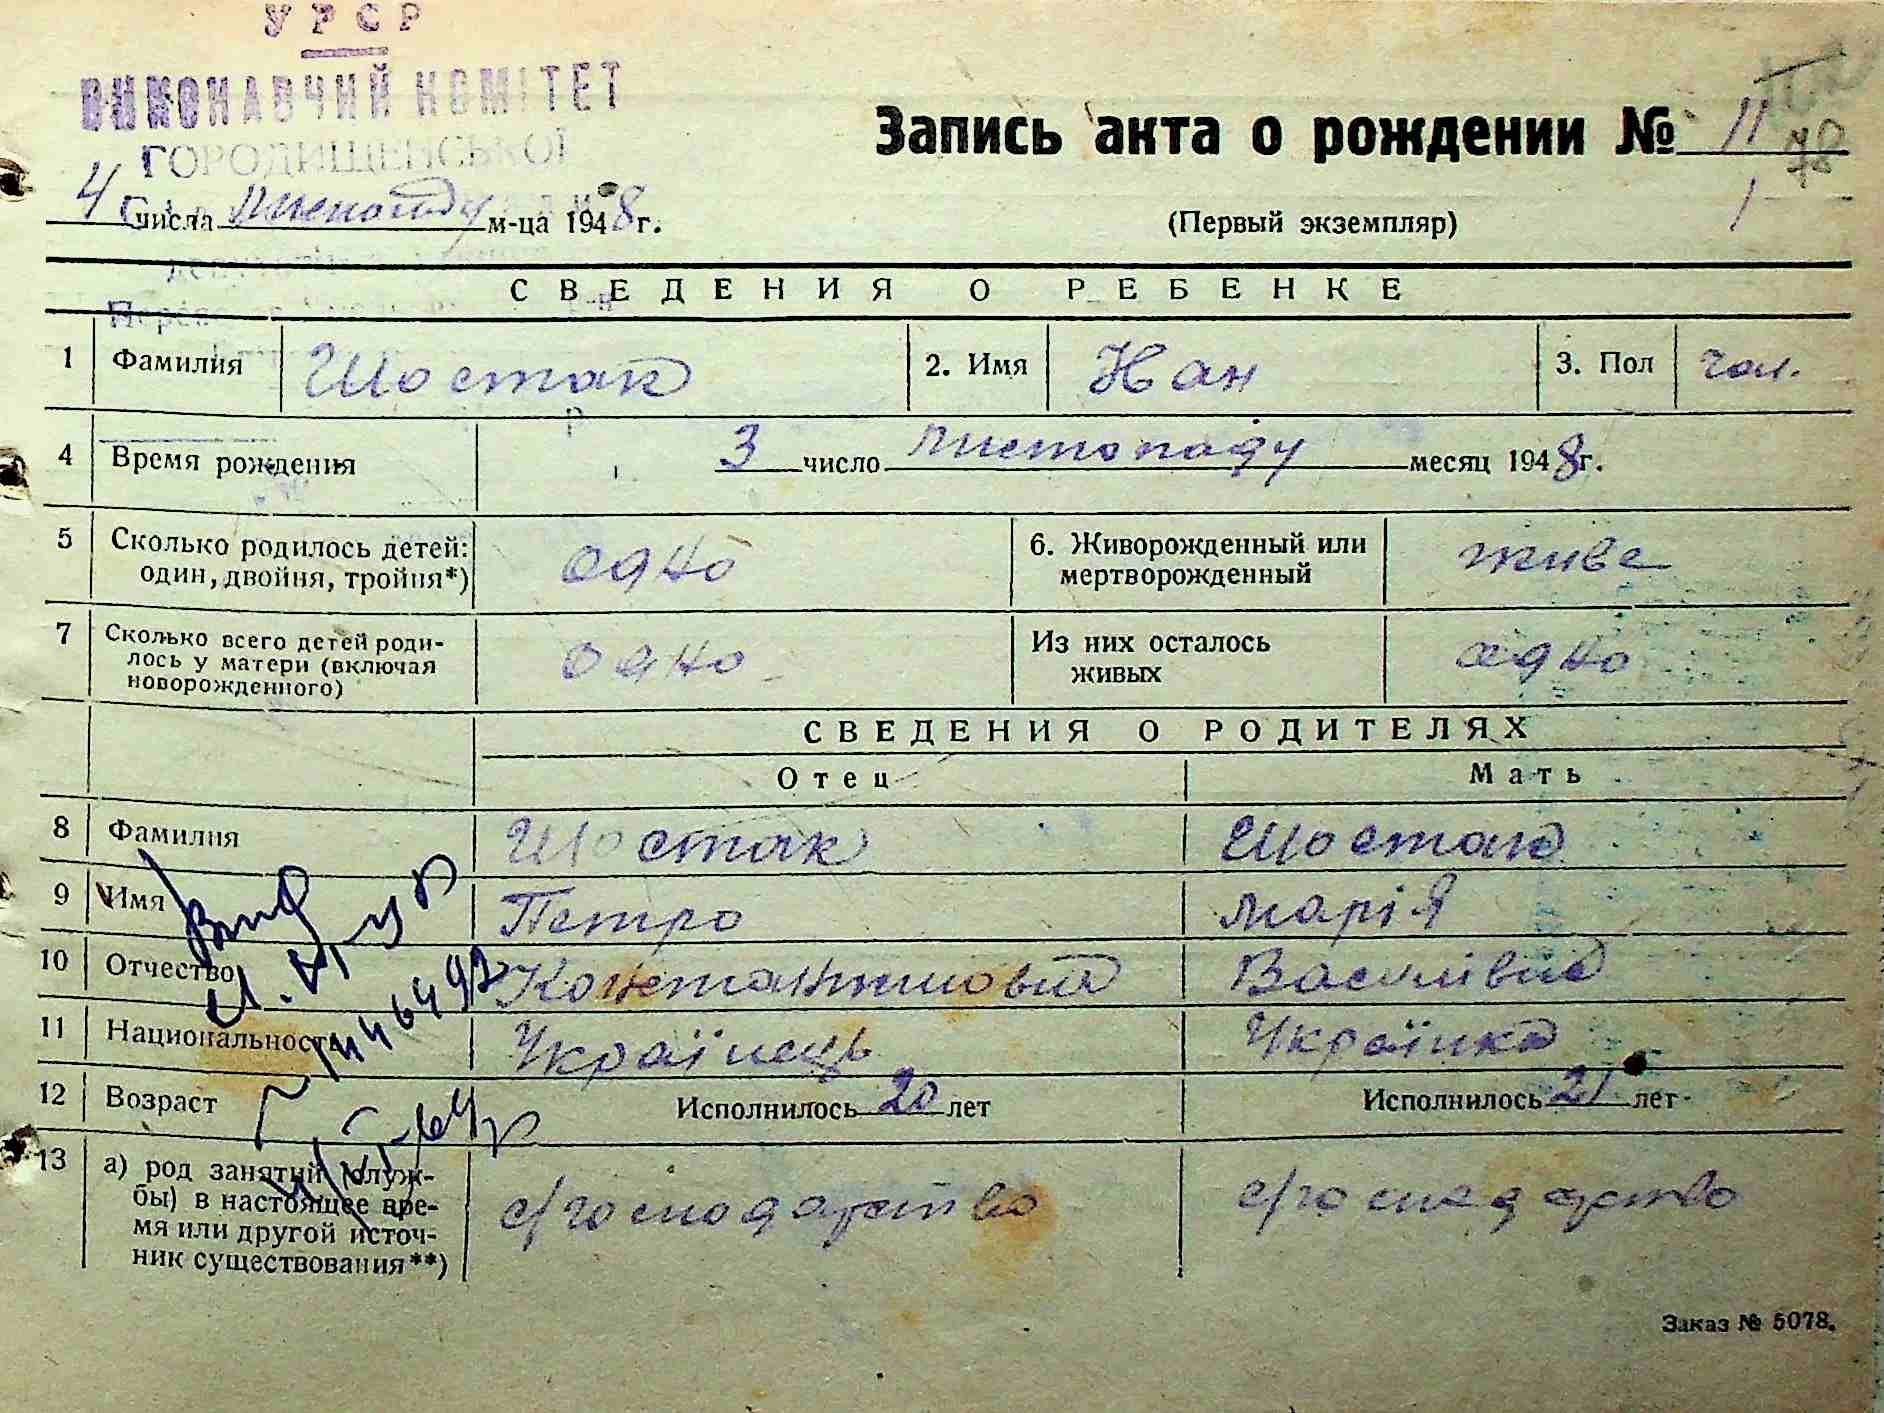 УРСР
ВИКОНАВЧИЙ КОМІТЕТ
ГОРОДИЩЕНСЬКОЇ
Запись акта о рождении № 11
4 числа листопаду м-ца 1948 г.
(Первый экземпляр)
1
СВЕДЕНИЯ О РЕБЕНКЕ
1 Фамилия Шостак 2. Имя Іван 3. Пол чол.
4 Время рождения 3 число листопаду месяц 1948 г.
5 Сколько родилось детей: один, двойня, тройня*) одно 6. Живорожденный или мертворожденный живе
7 Сколько всего детей родилось у матери (включая новорожденного) одно Из них осталось живых одно
СВЕДЕНИЯ О РОДИТЕЛЯХ
Отец Мать
8 Фамилия Шостак Шостак
9 Имя Петро Марія
10 Отчество Константинович Василівна
11 Национальность Українець Українка
12 Возраст Исполнилось 20 лет Исполнилось 21 лет
13 а) род занятий (службы) в настоящее время или другой источник существования**) с/господарство с/господарство
Заказ № 5078.